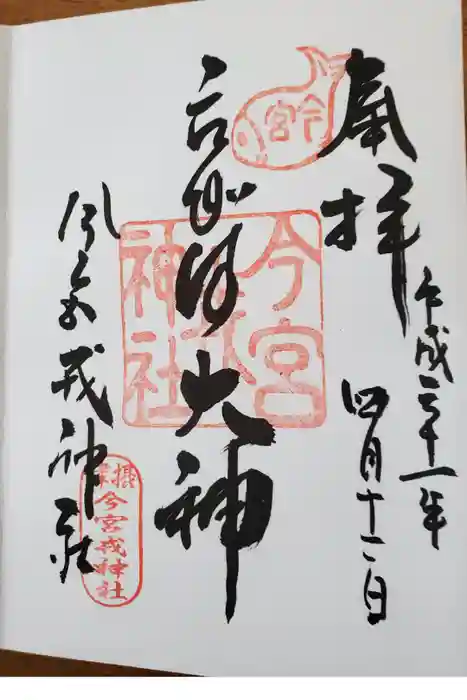 奉拝
平成三十一年
四月十二日
今宮
ゑびす大神
今宮戎神社
今宮戎神社
摂津
今宮戎神社